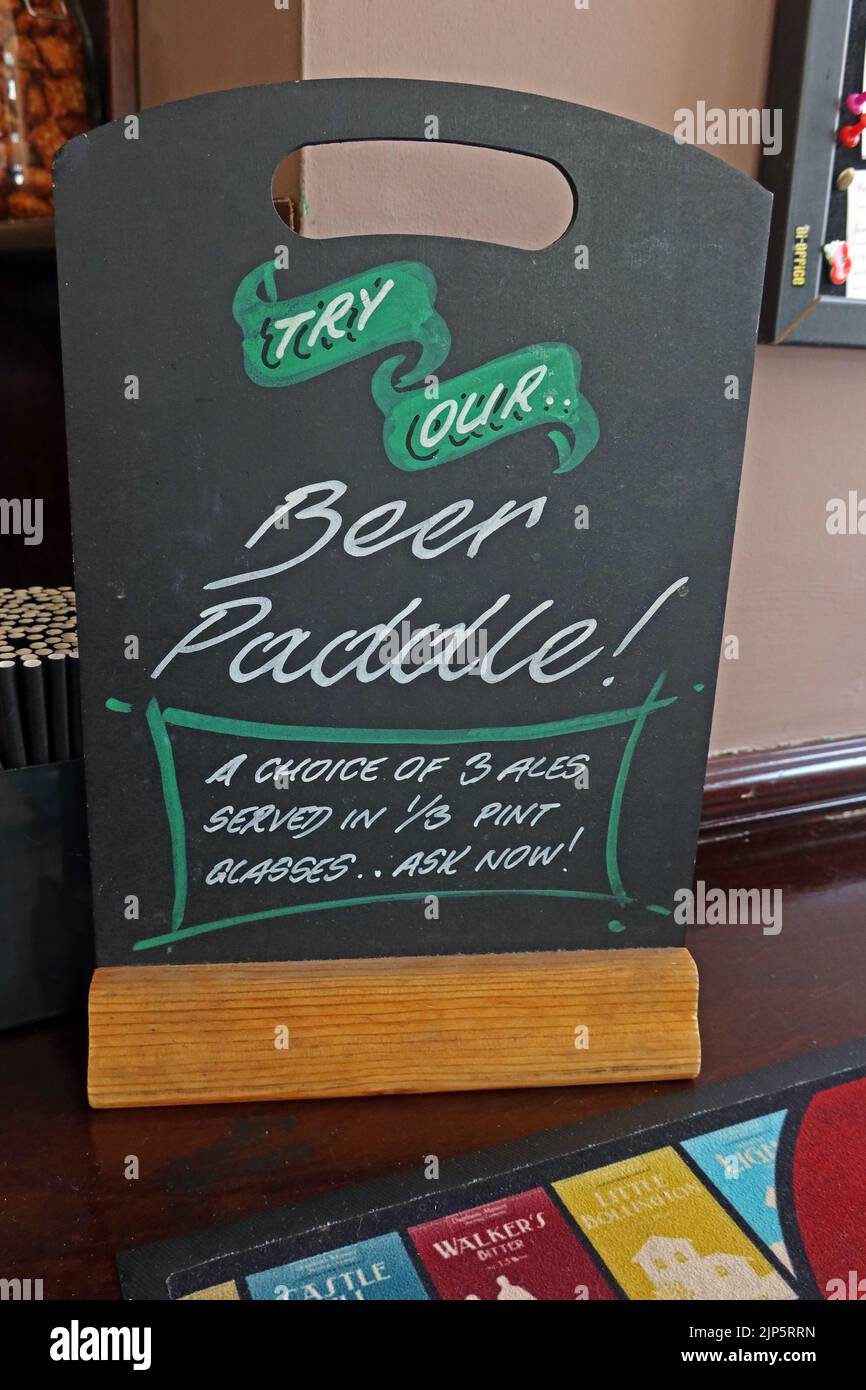 TRY
OUR..
Beer
Paddle!
A CHOICE OF 3 ALES
SERVED IN 1/3 PINT
GLASSES.. ASK NOW!
BI-OFFICE
CASTLE
WALKER'S
BITTER
LITTLE
BOLLINGTON
alamy
Image ID: 2JP5RRN
www.alamy.com